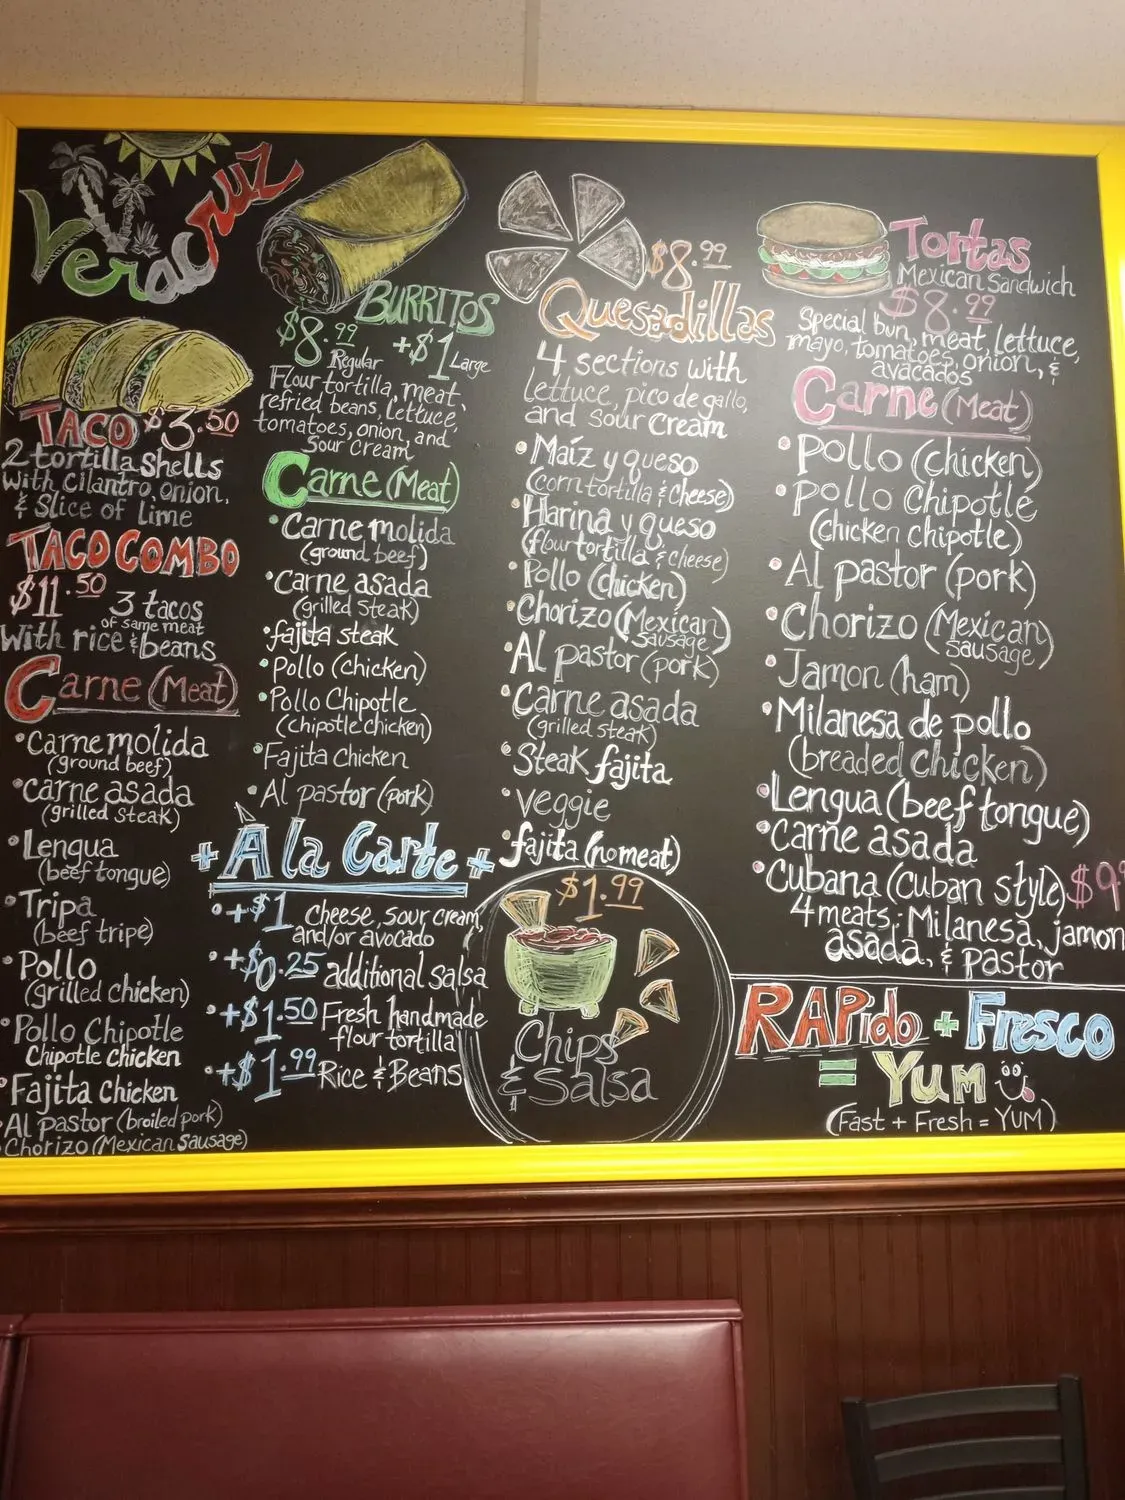 Veracruz
TACO $3.50
2 tortilla shells
with cilantro, onion,
& Slice of lime
TACO COMBO
$11.50 3 tacos
of same meat
With rice & beans
Carne (Meat)
• Carne molida
(ground beef)
• carne asada
(grilled steak)
• Lengua
(beef tongue)
• Tripa
(beef tripe)
• Pollo
(grilled chicken)
• Pollo Chipotle
Chipotle chicken
• Fajita Chicken
• Al pastor (broiled pork)
• Chorizo (Mexican Sausage)
BURRITOS
$8.99 Regular +$1 Large
Flour tortilla, meat,
refried beans, Lettuce,
tomatoes, onion, and
Sour cream
Carne (Meat)
• Carne molida
(ground beef)
• Carne asada
(grilled steak)
• fajita steak
• Pollo (chicken)
• Pollo Chipotle
(chipotle chicken)
• Fajita Chicken
• Al pastor (pork)
+ À la Carte +
• +$1 Cheese, sour cream,
and/or avocado
• +$0.25 additional salsa
• +$1.50 Fresh handmade
flour tortilla
• +$1.99 Rice & Beans
$8.99
Quesadillas
4 sections with
lettuce, pico de gallo,
and sour cream
• Maíz y queso
(corn tortilla & cheese)
• Harina y queso
(flour tortilla & cheese)
• Pollo (chicken)
• Chorizo (Mexican
Sausage)
• Al pastor (pork)
• Carne asada
(grilled steak)
• Steak fajita
• veggie
• fajita (no meat)
$1.99
Chips
& Salsa
Tortas
Mexican Sandwich
$8.99
Special bun, meat, lettuce,
mayo, tomatoes, onion, &
avacados
Carne (Meat)
• Pollo (chicken)
• Pollo Chipotle
(chicken chipotle)
• Al pastor (pork)
• Chorizo (Mexican
Sausage)
• Jamon (ham)
• Milanesa de pollo
(breaded chicken)
• Lengua (beef tongue)
• Carne asada
• Cubana (Cuban style)
4 meats; Milanesa, jamon
asada, & pastor
RAPido + Fresco
= Yum
(Fast + Fresh = YUM)